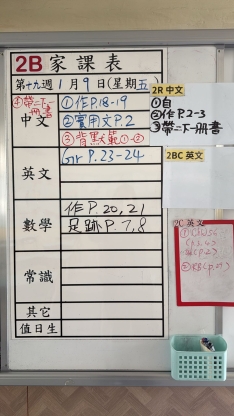 2B 家課表
第十九週 1月9日(星期五)
④帶二下一冊書
中文
①作P.18-19
②實用文P.2
③背默六(範①-②
英文
Gr P.23-24
數學
作P.20,21
足跡P.7,8
常識
其它
值日生
2R 中文
①自
②作P.2-3
③帶二下一冊書
2BC 英文
2C 英文